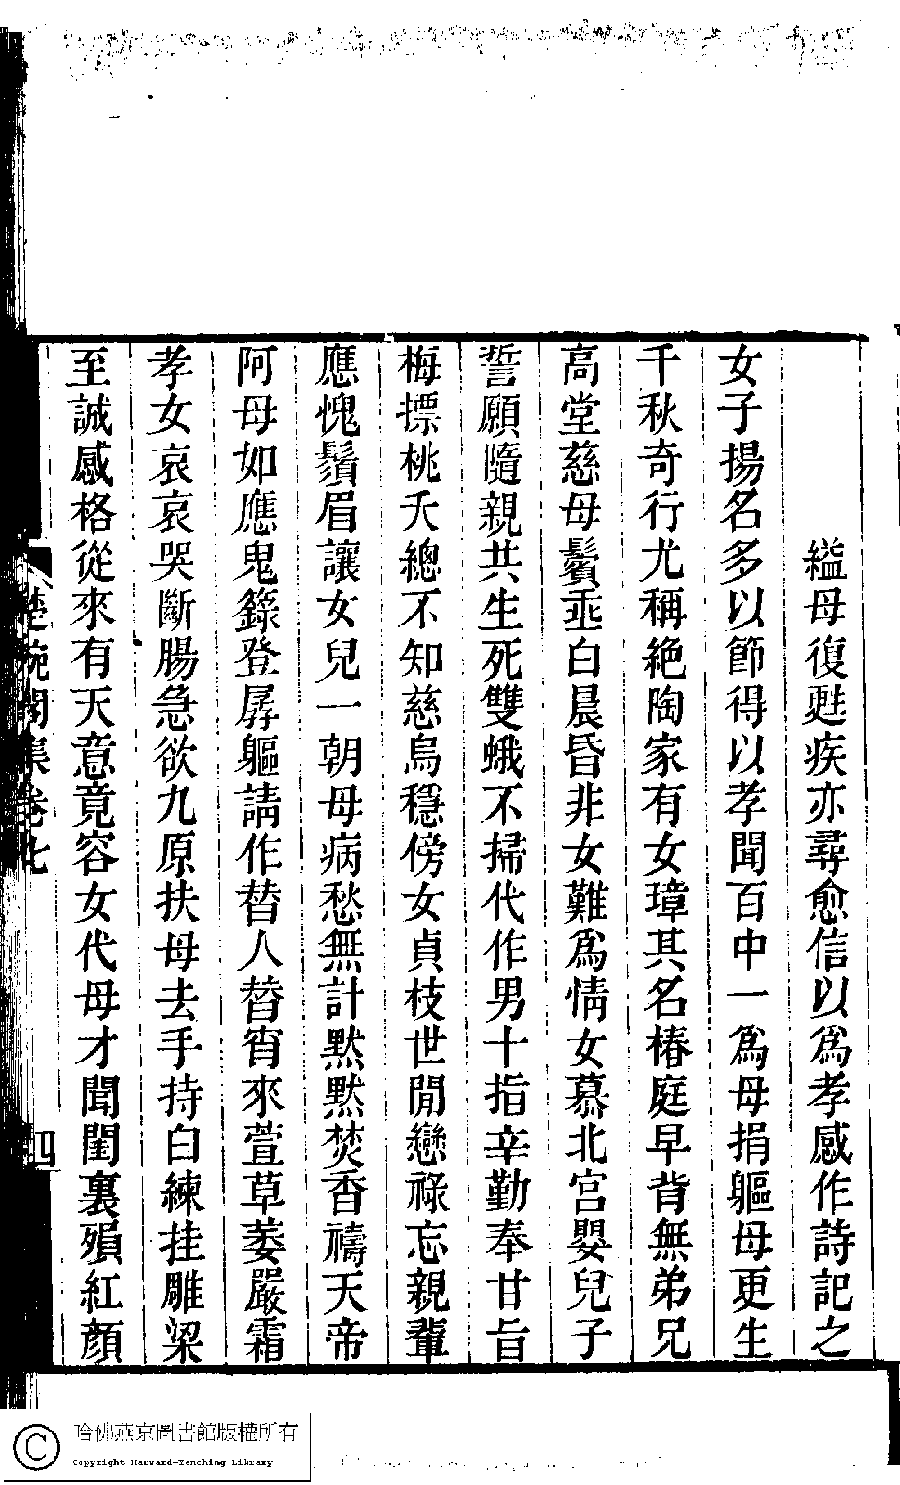 縊母復甦疾亦尋愈信以爲孝感作詩記之
女子揚名多以節得以孝聞百中一爲母捐軀母更生
千秋奇行尤稱絶陶家有女璋其名椿庭早背無弟兄
高堂慈母鬢垂白晨昏非女難爲情女慕北宮嬰兒子
誓願隨親共生死雙蛾不掃代作男十指辛勤奉甘旨
梅摽桃夭總不知慈烏穩傍女貞枝世閒戀祿忘親輩
應愧鬚眉讓女兒一朝母病愁無計默默焚香禱天帝
阿母如應鬼籙登孱軀請作替人替宵來萱草萎嚴霜
孝女哀哀哭斷腸急欲九原扶母去手持白練挂雕梁
至誠感格從來有天意竟容女代母才聞閨裏殞紅顏
楚畹閣集卷七
四
哈佛燕京圖書館版權所有
Copyright Harvard-Yenching Library